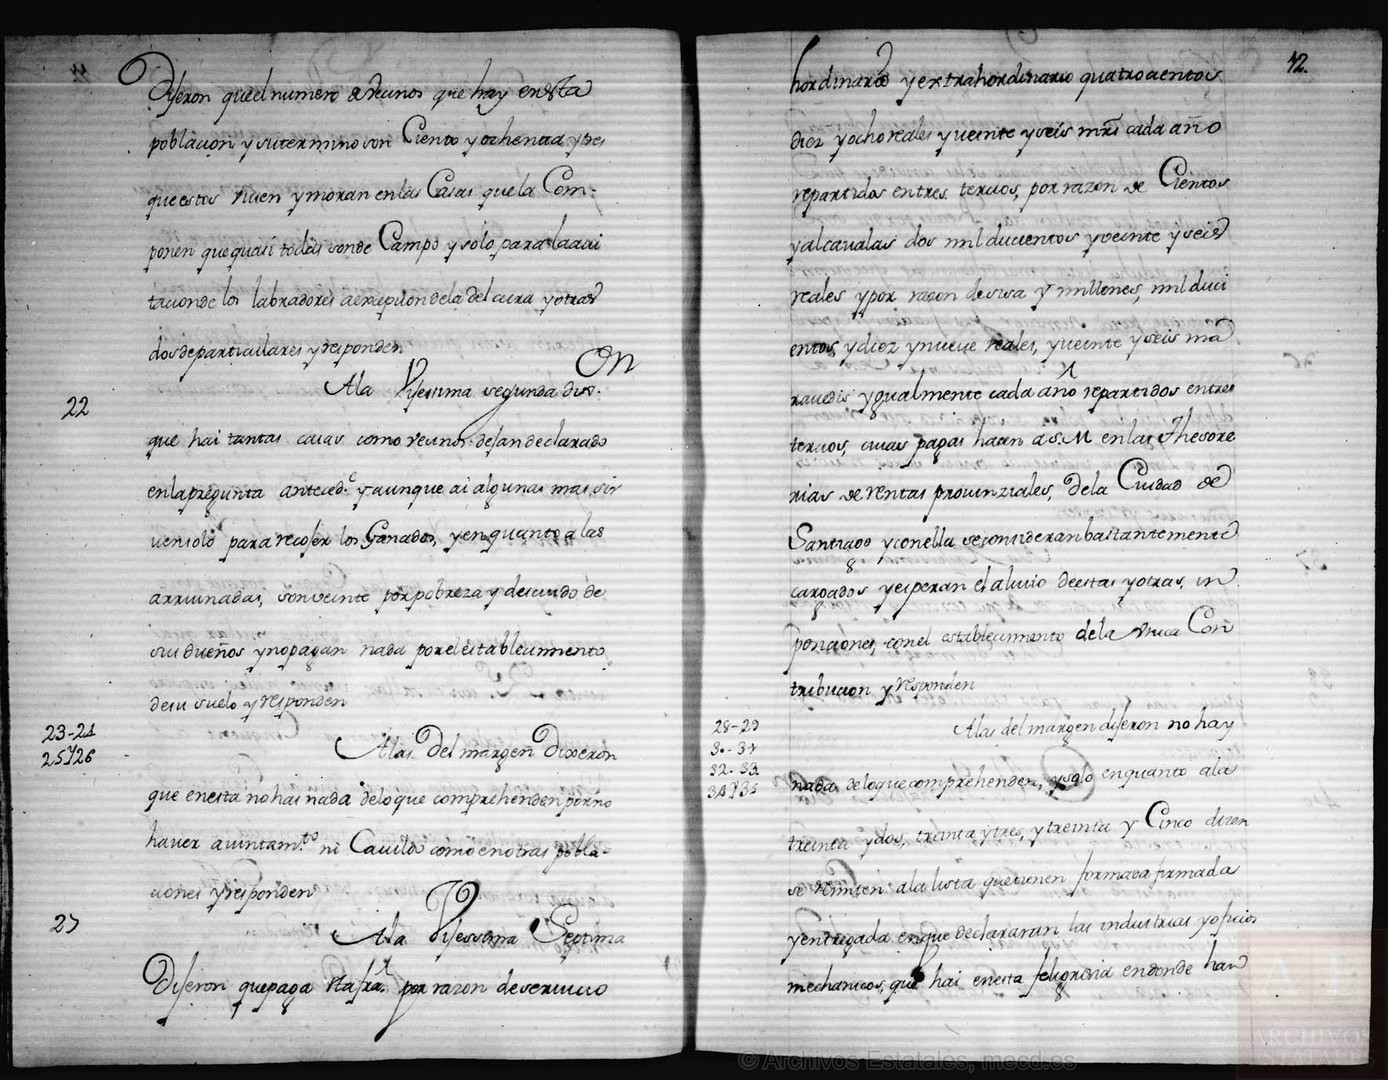 Dijeron que el numero de vecinos que hay en esta
poblacion y su termino son Ciento y ochenta y tres
que estos viven y moran en las Casas que la Com-
ponen que quasi todas son de Campo y solo para la avi
tacion de los labradores a excepcion de la del cura y otras
dos de particulares y responden
22
A la Vijesima segunda dix.on
que hai tantas casas como vecinos dejan declarado
en la pregunta anteced.e y aunque ai algunas mas sir
ven solo para recojer los Ganados, y en quanto a las
arruinadas, son veinte por pobreza y descuido de
sus dueños y no pagan nada por el establecimiento
de su suelo y responden
23-24
25y26
A las del margen Dixeron
que en esta no hai nada de lo que comprehenden por no
haver aiuntam.to ni Cavildo como en otras pobla-
ciones y responden
27
A la Vijesima Septima
Dijeron que paga esta fra. por razon de servicio
42.
hordinario y extrahordinario quatrocientos
diez y ocho reales y veinte y seis mrs cada año
repartidos en tres tercios, por razon de Cientos
y alcavalas dos mil ducientos y veinte y seis
reales y por razon de sisa y millones, mil duci
entos y diez y nueve reales, y veinte y seis ma
ravedis ygualmente cada año repartidos en tres
tercios, cuias pagas hacen a S.M en las Thesore
rias de rentas provinziales, de la Ciudad de
Santiago y con ella se consideran bastantemente
cargados y esperan el alivio de estas y otras, in
posiciones, con el establecimiento de la Unica Con
tribucion y responden
28-29
30-31
32-33
34y35
A las del margen dijeron no hay
nada de lo que comprehenden, y solo en quanto a la
treinta y dos, treinta y tres, y treinta y Cinco dicen
se remiten a la lista que tienen formada firmada
y entregada en que declararan las industrias y oficios
mechanicos, que hai en esta feligresia en donde han
© Archivos Estatales, mecd.es
ARCHIVOS
ESTATALES